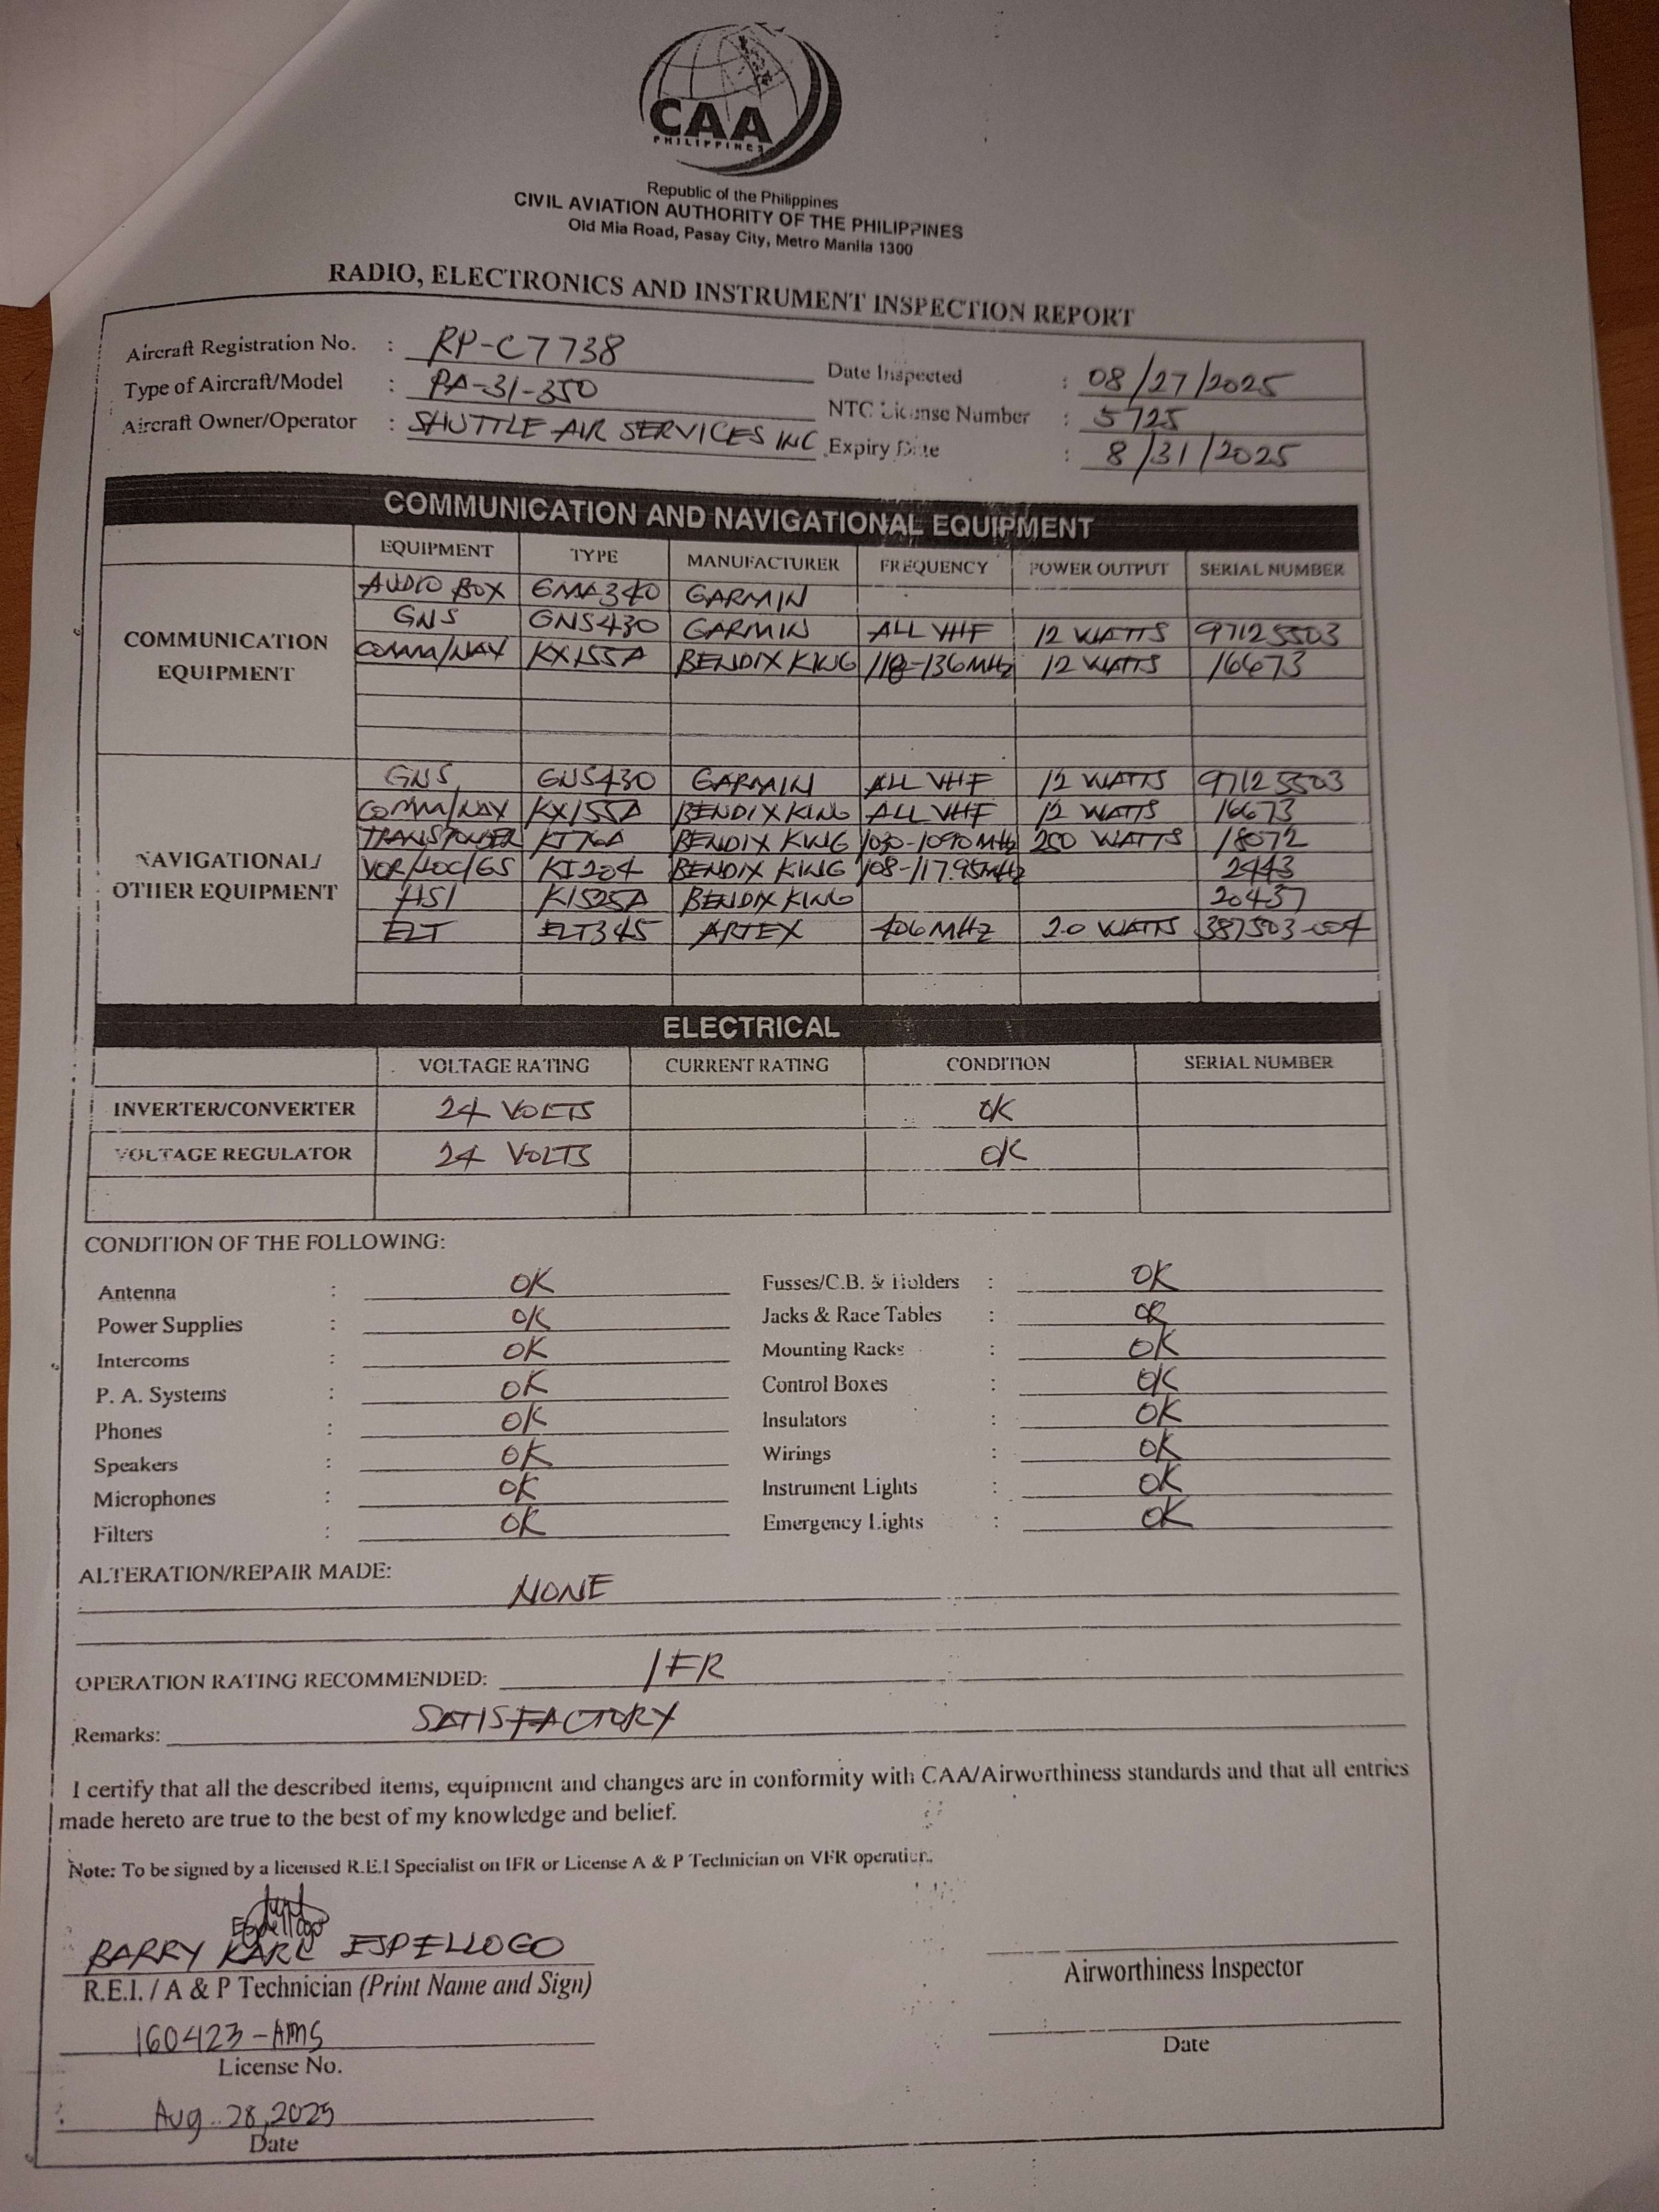 CAA
PHILIPPINES
Republic of the Philippines
CIVIL AVIATION AUTHORITY OF THE PHILIPPINES
Old Mia Road, Pasay City, Metro Manila 1300
RADIO, ELECTRONICS AND INSTRUMENT INSPECTION REPORT
Aircraft Registration No. : RP-C7738
Date Inspected : 08/27/2025
Type of Aircraft/Model : PA-31-350
NTC License Number : 5725
Aircraft Owner/Operator : SHUTTLE AIR SERVICES INC
Expiry Date : 8/31/2025
COMMUNICATION AND NAVIGATIONAL EQUIPMENT
EQUIPMENT TYPE MANUFACTURER FREQUENCY POWER OUTPUT SERIAL NUMBER
COMMUNICATION EQUIPMENT
AUDIO BOX GMA340 GARMIN
GNS GNS430 GARMIN ALL VHF 12 WATTS 97125503
COMM/NAV KX155A BENDIX KING 118-136MHz 12 WATTS 16673
NAVIGATIONAL/ OTHER EQUIPMENT
GNS GNS430 GARMIN ALL VHF 12 WATTS 97125503
COMM/NAV KX155A BENDIX KING ALL VHF 12 WATTS 16673
TRANSPONDER KT76A BENDIX KING 1030-1090MHz 250 WATTS 18072
VOR/LOC/GS KI204 BENDIX KING 108-117.95MHz 2443
HSI KI525A BENDIX KING 20437
ELT ELT345 ARTEX 406MHz 20 WATTS 387503-004
ELECTRICAL
VOLTAGE RATING CURRENT RATING CONDITION SERIAL NUMBER
INVERTER/CONVERTER 24 VOLTS OK
VOLTAGE REGULATOR 24 VOLTS OK
CONDITION OF THE FOLLOWING:
Antenna : OK Fusses/C.B. & Holders : OK
Power Supplies : OK Jacks & Race Tables : OK
Intercoms : OK Mounting Racks : OK
P. A. Systems : OK Control Boxes : OK
Phones : OK Insulators : OK
Speakers : OK Wirings : OK
Microphones : OK Instrument Lights : OK
Filters : OK Emergency Lights : OK
ALTERATION/REPAIR MADE:
NONE
OPERATION RATING RECOMMENDED: IFR
Remarks: SATISFACTORY
I certify that all the described items, equipment and changes are in conformity with CAA/Airworthiness standards and that all entries
made hereto are true to the best of my knowledge and belief.
Note: To be signed by a licensed R.E.I Specialist on IFR or License A & P Technician on VFR operation.
BARRY KARL ESPELLOGO
R.E.I. / A & P Technician (Print Name and Sign)
Airworthiness Inspector
160423-AMS
License No.
Date
Aug. 28, 2025
Date